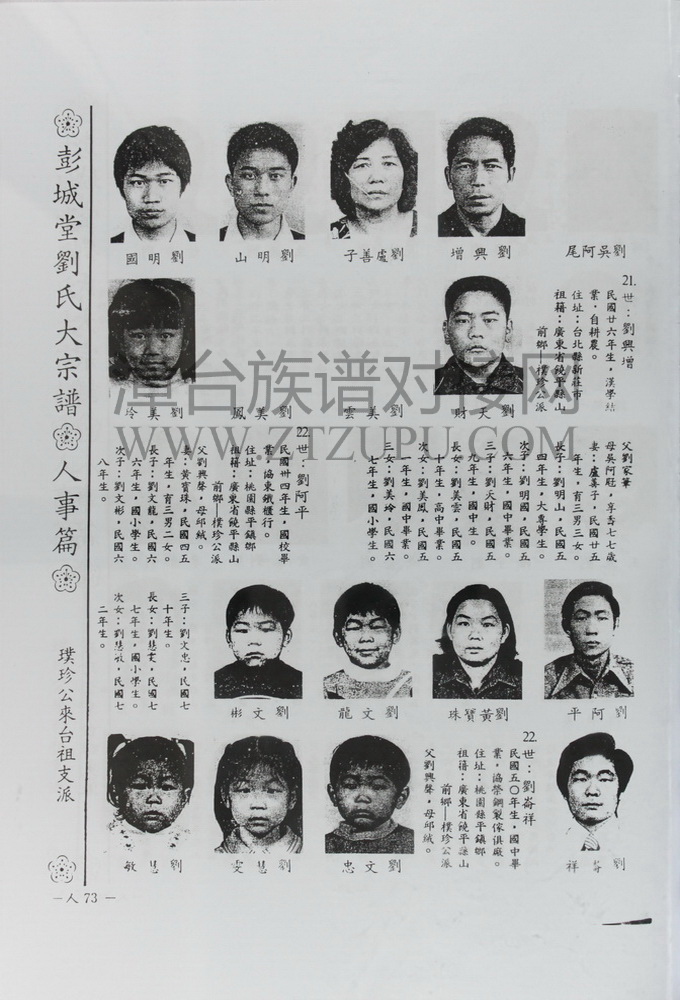 彭城堂劉氏大宗譜
人事篇
璞珍公來台祖支派
劉吳阿尾
劉興增
劉盧善子
劉明山
劉明國
21.世：劉興增
民國廿六年生，漢學結
業，自耕農。
住址：台北縣新莊市
祖籍：廣東省饒平縣山
前鄉—樸珍公派
劉天財
劉美雲
劉美鳳
劉美玲
父劉家筆
母吳阿尾，享壽七七歲
妻：盧善子，民國廿五
年生，育三男三女。
長子：劉明山，民國五
四年生，大專學生。
次子：劉明國，民國五
六年生，國中畢業。
三子：劉天財，民國五
九年生，國中生。
長女：劉美雲，民國五
十年生，高中畢業。
次女：劉美鳳，民國五
一年生，國中畢業。
三女：劉美玲，民國六
七年生，國小學生。
22.世：劉阿平
民國卅四年生，國校畢
業，協東鐵櫃行。
住址：桃園縣平鎮鄉
祖籍：廣東省饒平縣山
前鄉—樸珍公派
父劉興聲，母邱絨。
妻：黃寶珠，民國四五
年生，育三男二女。
長子：劉文龍，民國六
六年生，國小學生。
次子：劉文彬，民國六
八年生。
劉阿平
劉黃寶珠
劉文龍
劉文彬
三子：劉文忠，民國七
十年生。
長女：劉慧雯，民國七
七年生，國小學生。
次女：劉慧敏，民國七
二年生。
劉崙祥
22.世：劉崙祥
民國五〇年生，國中畢
業，協榮鋼製傢俱廠。
住址：桃園縣平鎮鄉
祖籍：廣東省饒平縣山
前鄉—樸珍公派
父劉興聲，母邱絨。
劉文忠
劉慧雯
劉慧敏
—人 73—
漳台族谱对接网
WWW.ZTZUPU.COM